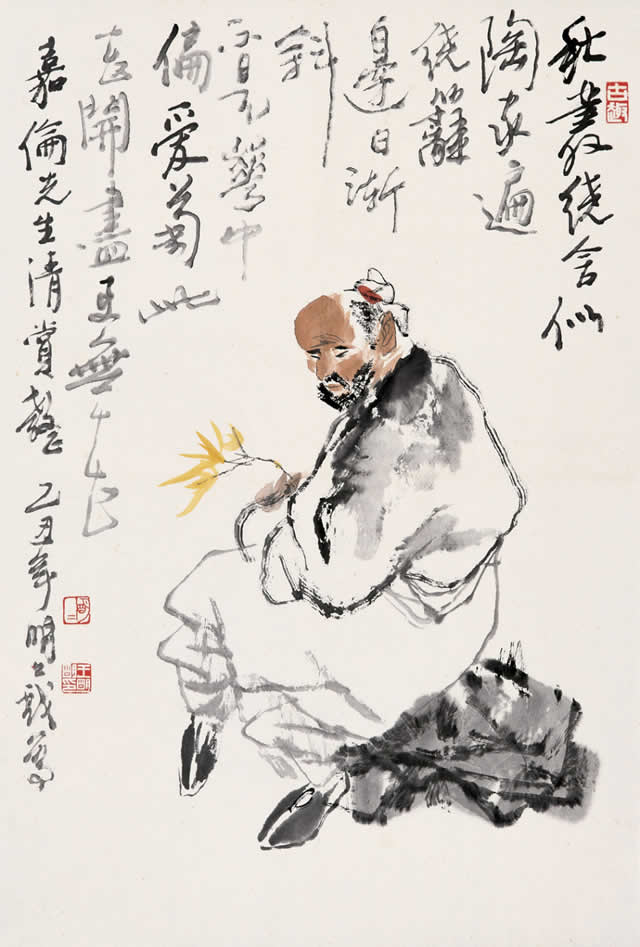 秋叢绕舍似
陶家遍
绕籬
邊日漸
斜
不是華中
偏愛菊此
花開盡更無花
嘉倫先生清賞 乙丑年明明戲筆